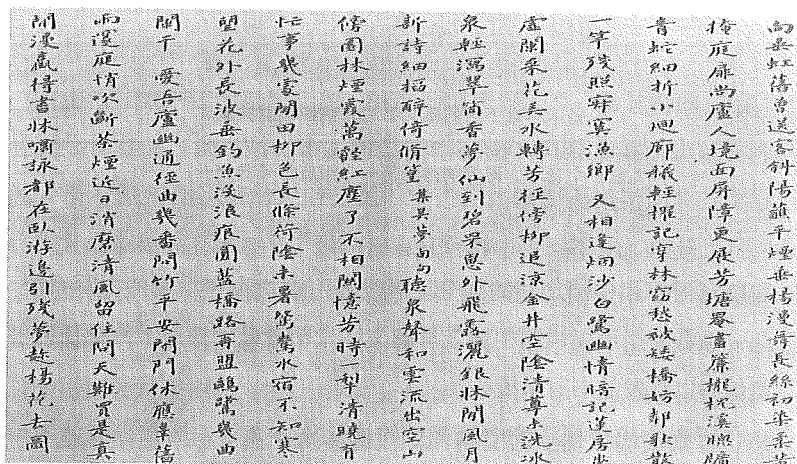 垂虹舊曾送客斜陽蘸平煙垂楊漫舞長絲初染柔
掩庭扉尚廬人境面屏障更展芳塘罨畫簾櫳枕溪牎牖
青蛇細折小迴廊艤輕櫂記穿林窈窕被矮橋妨都歌散
一竿殘照寂寞漁鄉 又相逢烟沙白鷺幽情暗記蓮房步
虛閣采花吳水轉芳徑傍柳追涼金井空陰清尊未洗冰
泉輕瀉翠筒香夢仙到碧罘罳外飛露灑銀牀閒風月
新詩細搯醉倚脩篁 集吳夢窗句 聽泉聲和雲流出空山
傍園林煙霞萬壑紅塵了不相關憶芳時一犁清曉肯
忙事幾處閒田柳色長條荷陰未暑鴛鴦水宿不知寒
望花外長波垂釣魚没浪痕圓藍橋路再盟鷗鷺幾曲
闌干 愛吾廬幽通徑曲幾番問竹平安閉門休應辜舊
响邃庭悄吹斷茶煙近日消磨清風留住問天難買是真
閒漫贏得書牀嘯詠都在臥游邊引殘夢趂楊花去圖